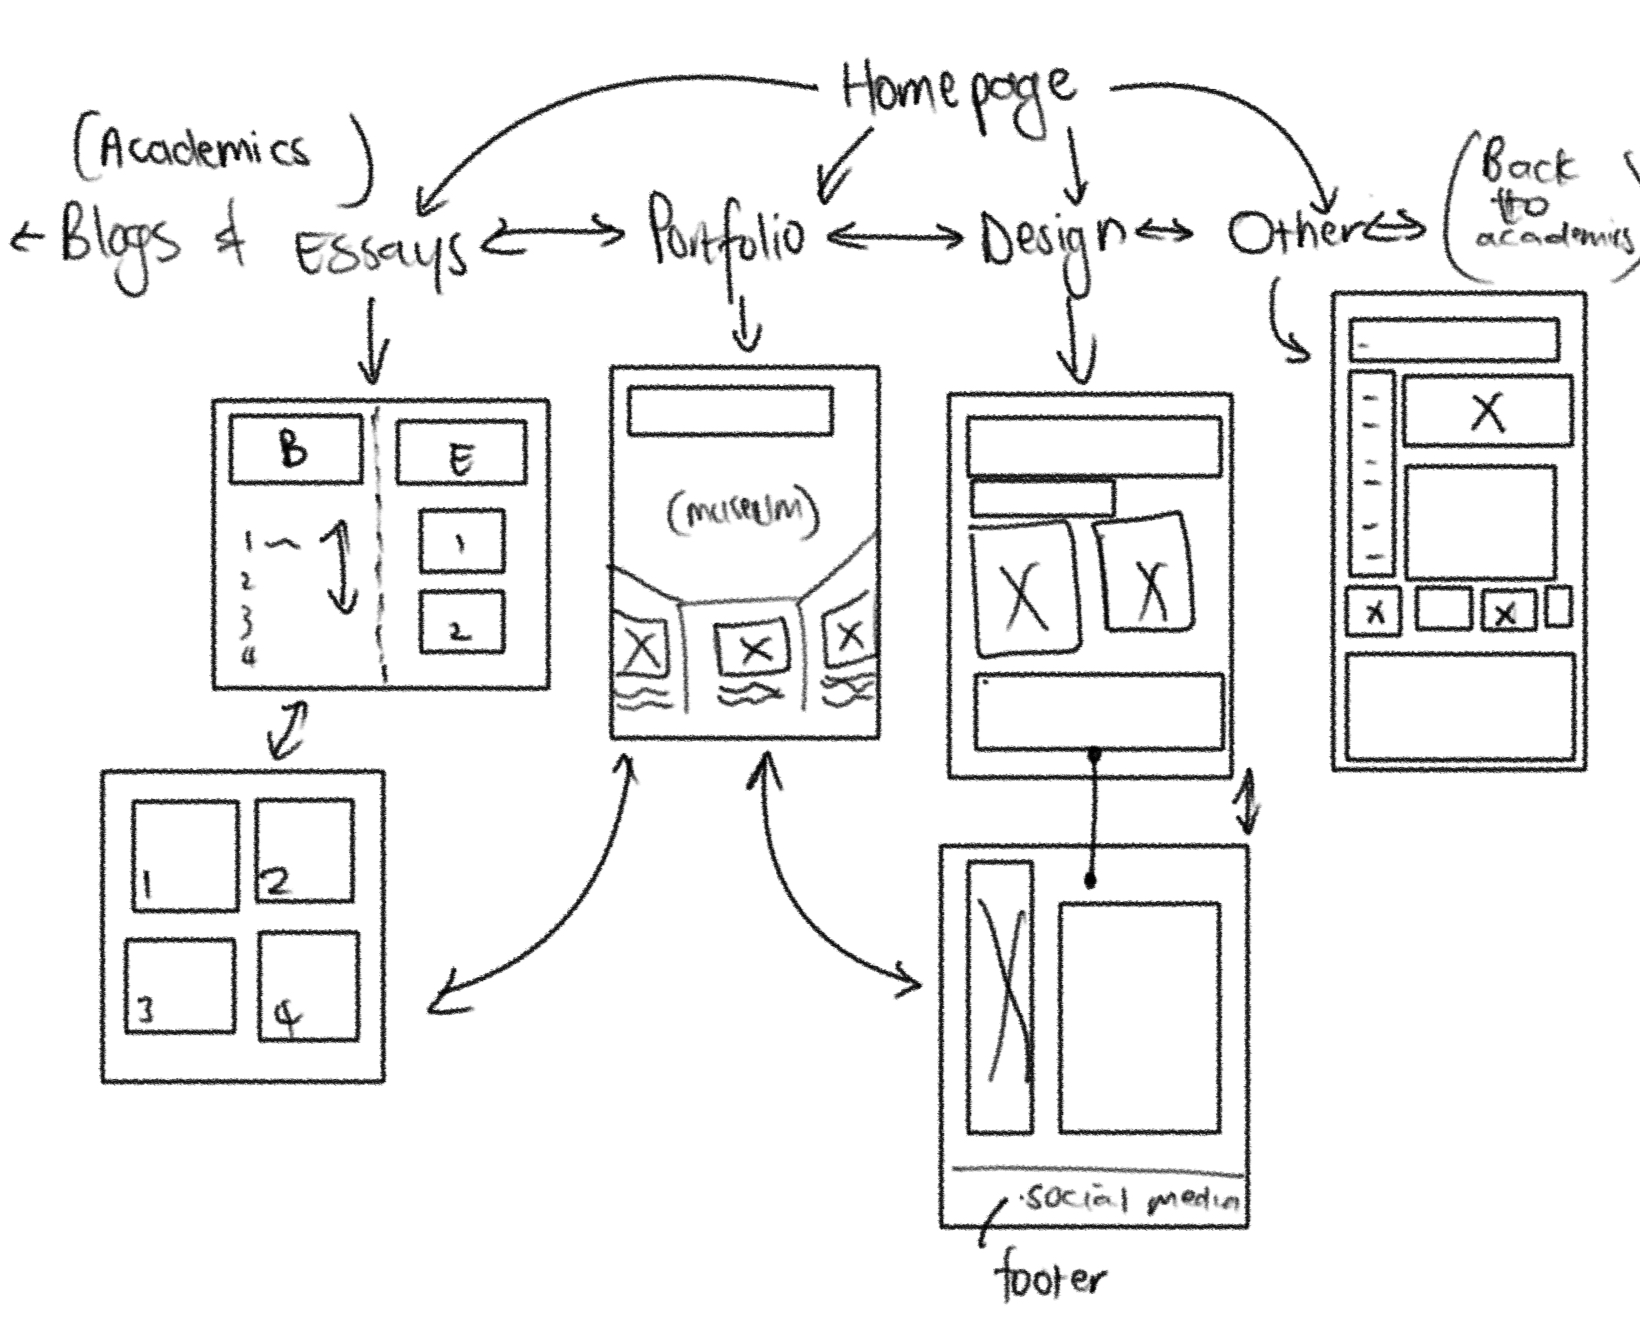 Homepage
(Academics)
Blogs & Essays
Portfolio
Design
Other
(Back
to
academics)
B
E
1
2
3
4
1
2
(museum)
X
X
X
X
X
X
X
X
1
2
3
4
X
social media
footer